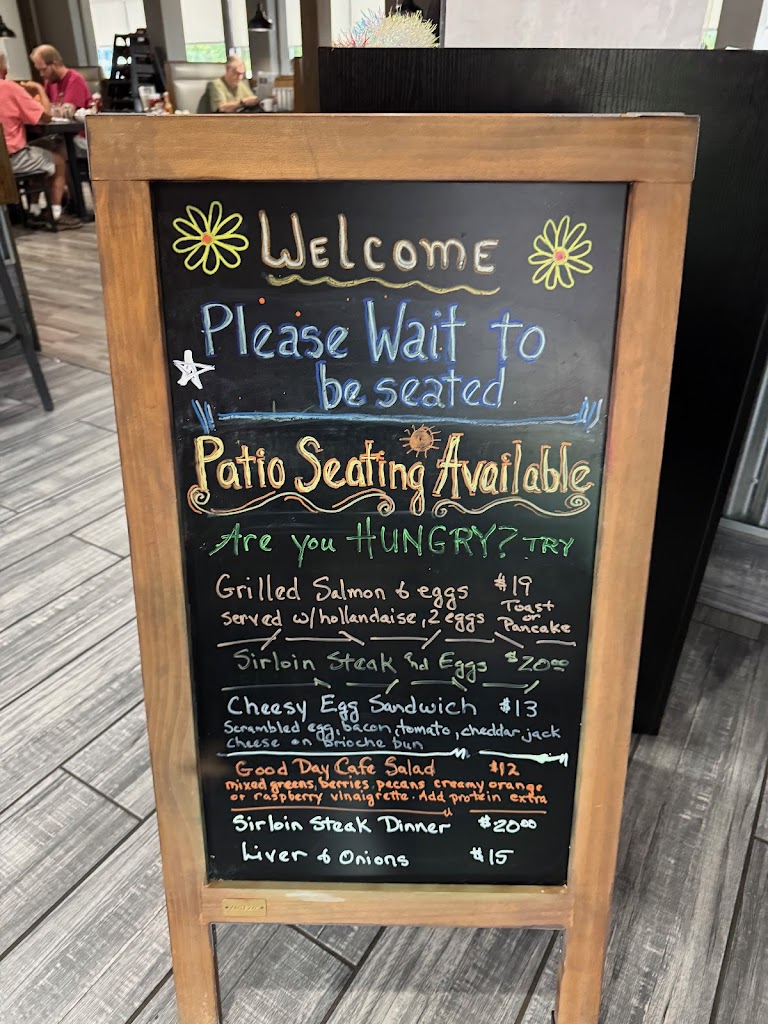 Welcome
Please Wait to
be seated
Patio Seating Available
Are you HUNGRY? TRY
Grilled Salmon & eggs $19
served w/hollandaise, 2 eggs Toast
or
Pancake
Sirloin Steak and Eggs $20.00
Cheesy Egg Sandwich $13
Scrambled egg, bacon, tomato, cheddar jack
cheese on Brioche bun
Good Day Cafe Salad $12
mixed greens, berries, pecans creamy orange
or raspberry vinaigrette. Add protein extra
Sirloin Steak Dinner $20.00
Liver & Onions $15